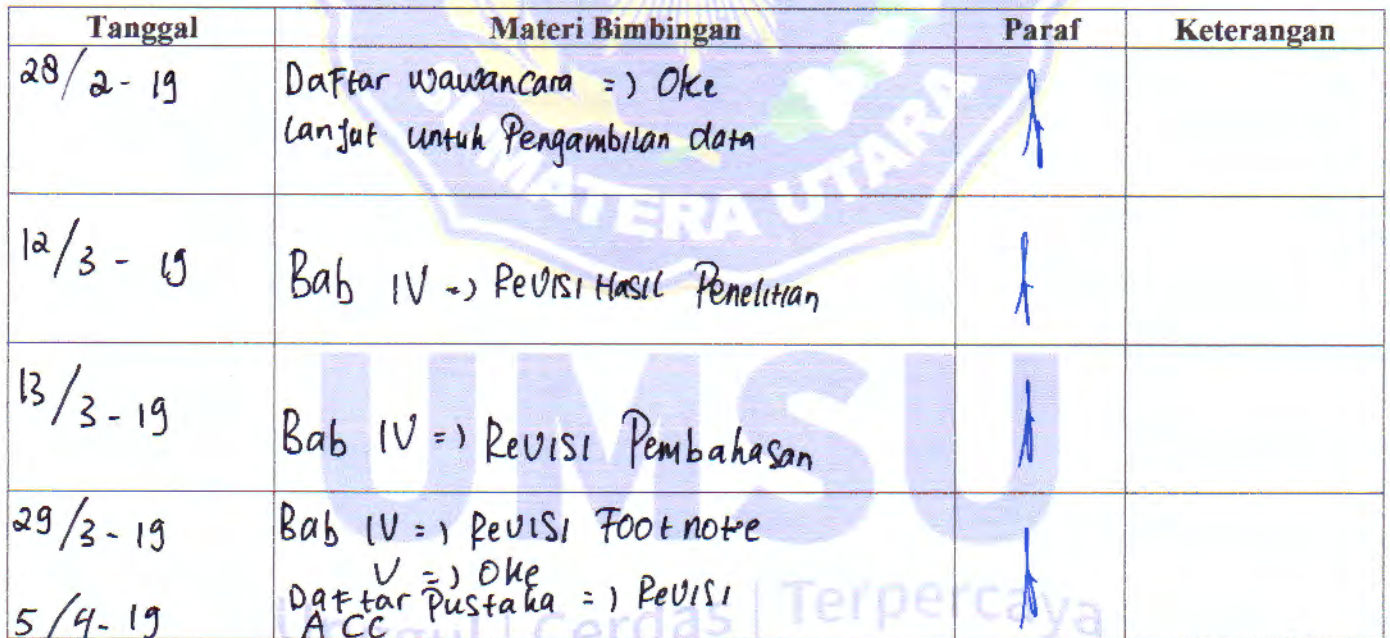 Tanggal Materi Bimbingan Paraf Keterangan
28/2-19 Daftar wawancara => Oke
lanjut untuk Pengambilan data
12/3-19 Bab IV => Revisi Hasil Penelitian
13/3-19 Bab IV => Revisi Pembahasan
29/3-19 Bab IV => Revisi Footnote
V => Oke
Daftar Pustaka => Revisi
5/4-19 ACC
SUMATERA UTARA
UMSU
Unggul | Cerdas | Terpercaya